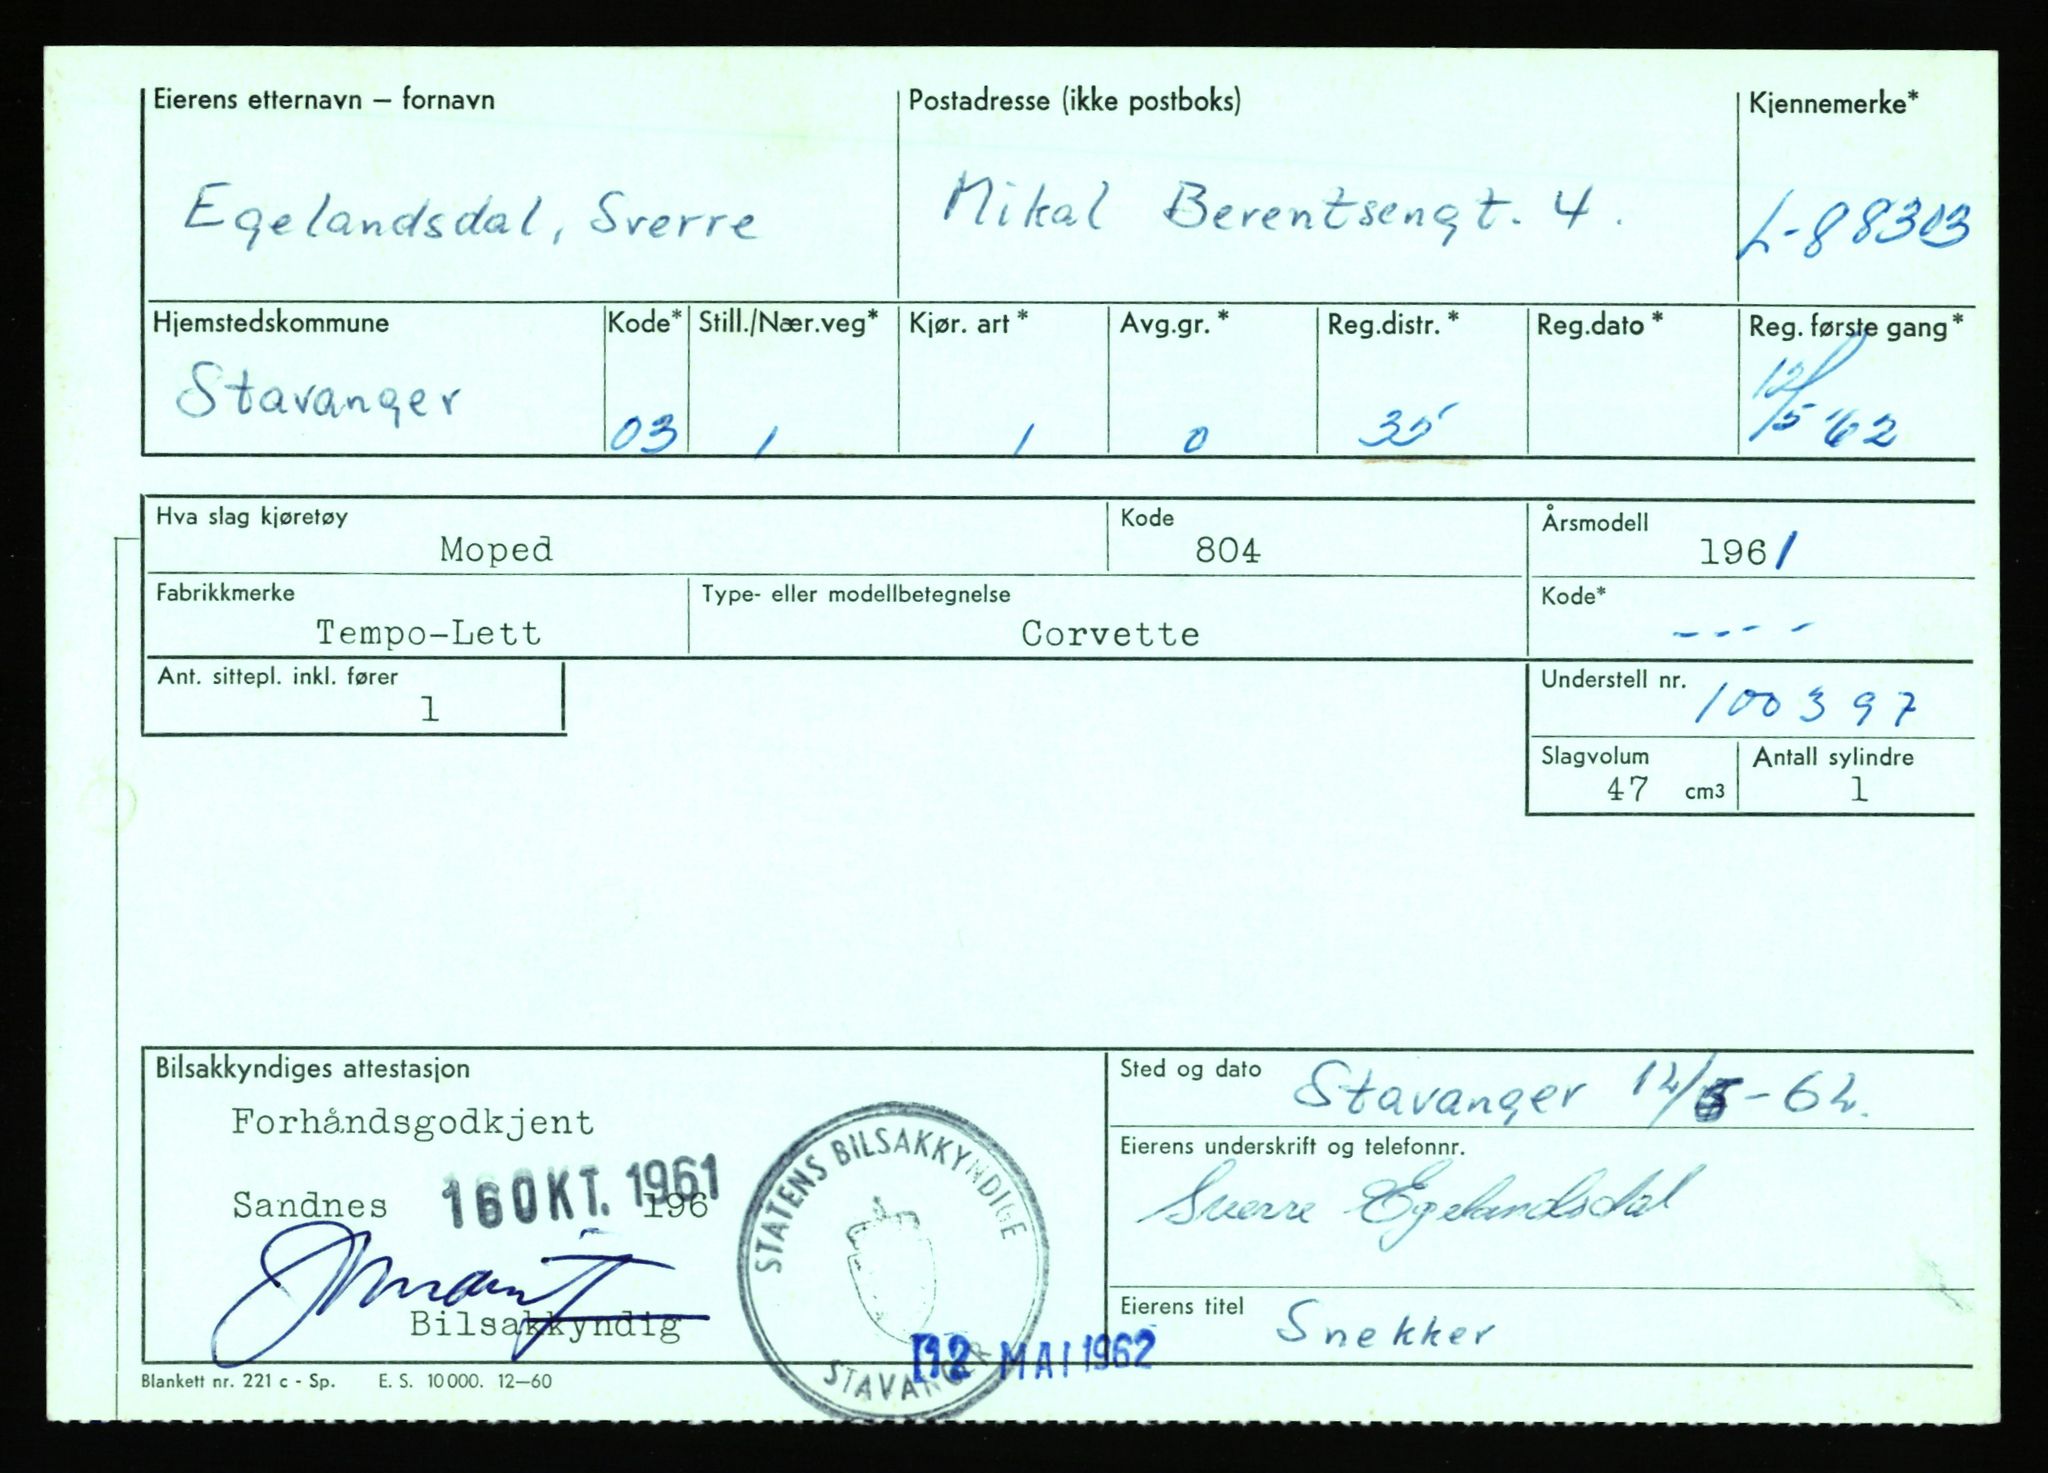 Eierens etternavn – fornavn
Postadresse (ikke postboks)
Kjennemerke*
Egelandsdal, Sverre
Mikal Berentsengt. 4.
L-88303
Hjemstedskommune
Kode*
Still./Nær.veg*
Kjør. art *
Avg.gr. *
Reg.distr. *
Reg.dato *
Reg. første gang*
Stavanger
03
1
1
0
35
12/5 '62
Hva slag kjøretøy
Moped
Kode
804
Årsmodell
1961
Fabrikkmerke
Tempo-Lett
Type- eller modellbetegnelse
Corvette
Kode*
- - - -
Ant. sittepl. inkl. fører
1
Understell nr.
100397
Slagvolum
47 cm3
Antall sylindre
1
Bilsakkyndiges attestasjon
Forhåndsgodkjent
Sandnes 196
16 OKT. 1961
Bilsakkyndig
STATENS BILSAKKYNDIGE
STAVANGER
12 MAI 1962
Sted og dato
Stavanger 12/5-62.
Eierens underskrift og telefonnr.
Sverre Egelandsdal
Eierens titel
Snekker
Blankett nr. 221 c - Sp. E. S. 10 000. 12–60